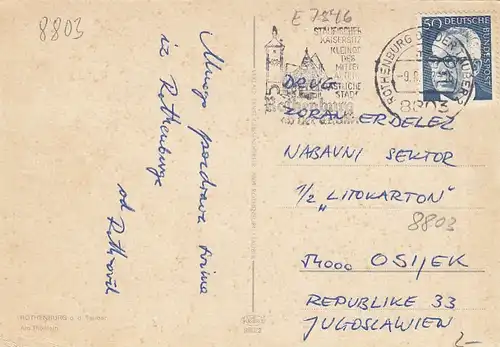 8803
E 7846
Mnogo pozdrava svima
iz Rothenburga
od
STAUFISCHER
KAISERSITZ
KLEINOD
DES
MITTEL
ALTERS
GASTLICHE
STADT
Rothenburg
50 DEUTSCHE BUNDESPOST
ROTHENBURG OB DER TAUBER
8803
DRUG
ZORAN ERDELEZ
NABAVNI SEKTOR
1/2 „LITOKARTON"
8803
54000 OSIJEK
REPUBLIKE 33
JUGOSLAWIEN
2-
ROTHENBURG o. d. Tauber
Am Plönlein